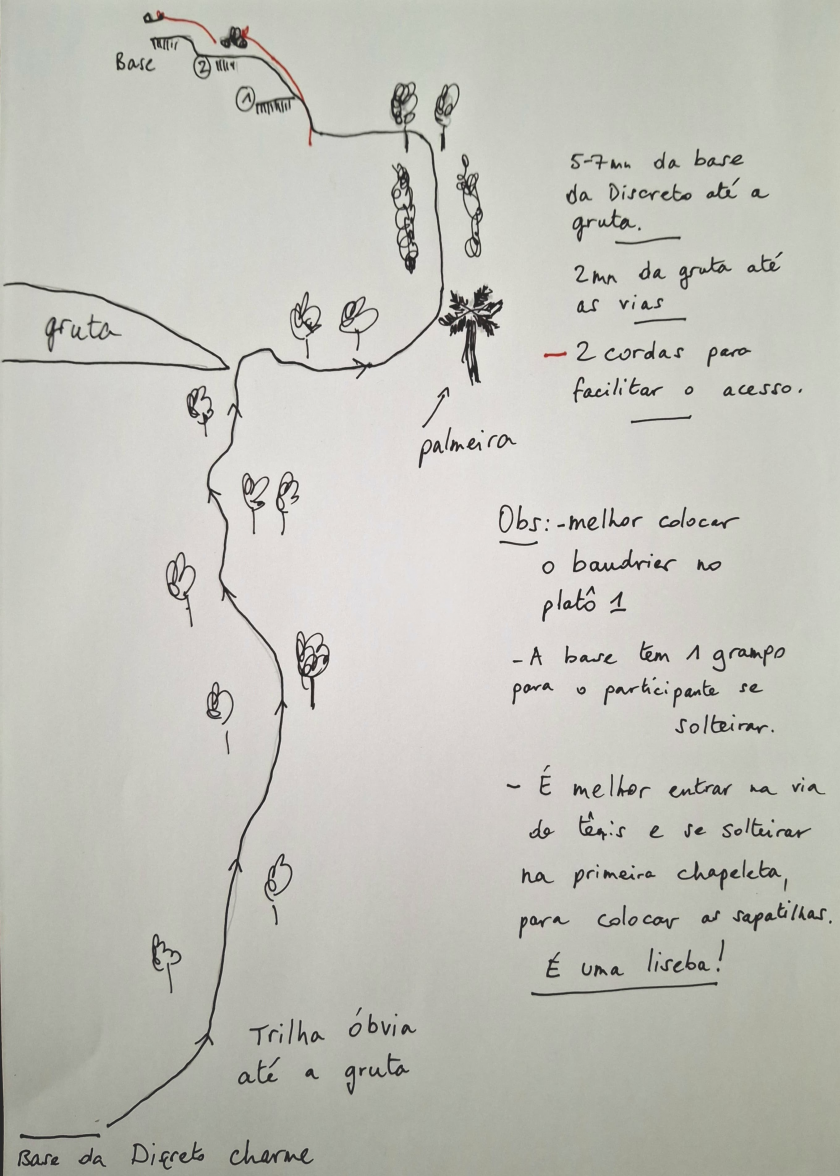 Base
2
1
5-7mn da base
da Discreto até a
gruta.
2mn da gruta até
as vias
2 cordas para
facilitar o acesso.
gruta
palmeira
Obs: -melhor colocar
o baudrier no
platô 1
- A base tem 1 grampo
para o participante se
solteirar.
- É melhor entrar na via
de tênis e se solteirar
na primeira chapeleta,
para colocar as sapatilhas.
É uma liseba!
Trilha óbvia
até a gruta
Base da Discreto charme